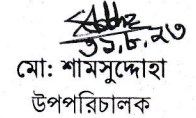 ৩১.৮.২৩
মো: শামসুদ্দোহা
উপপরিচালক